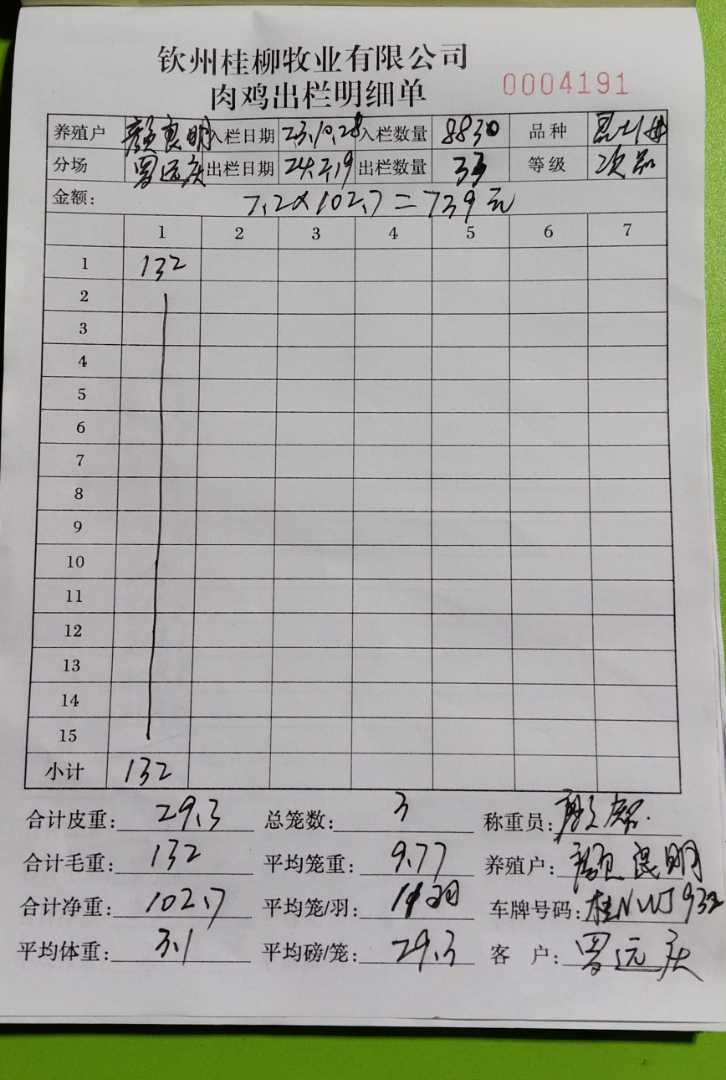 钦州桂柳牧业有限公司
肉鸡出栏明细单 0004191
养殖户 颜良明 入栏日期 23.10.28 入栏数量 8830 品种
分场 罗远庆 出栏日期 24.2.19 出栏数量 33 等级 次品
金额: 7.2×102.7=739元
1 2 3 4 5 6 7
1 132
2
3
4
5
6
7
8
9
10
11
12
13
14
15
小计 132
合计皮重: 29.3 总笼数: 3 称重员:
合计毛重: 132 平均笼重: 9.77 养殖户: 颜良明
合计净重: 102.7 平均笼/羽: 11羽 车牌号码: 桂NWJ932
平均体重: 3.1 平均磅/笼: 29.3 客户: 罗远庆